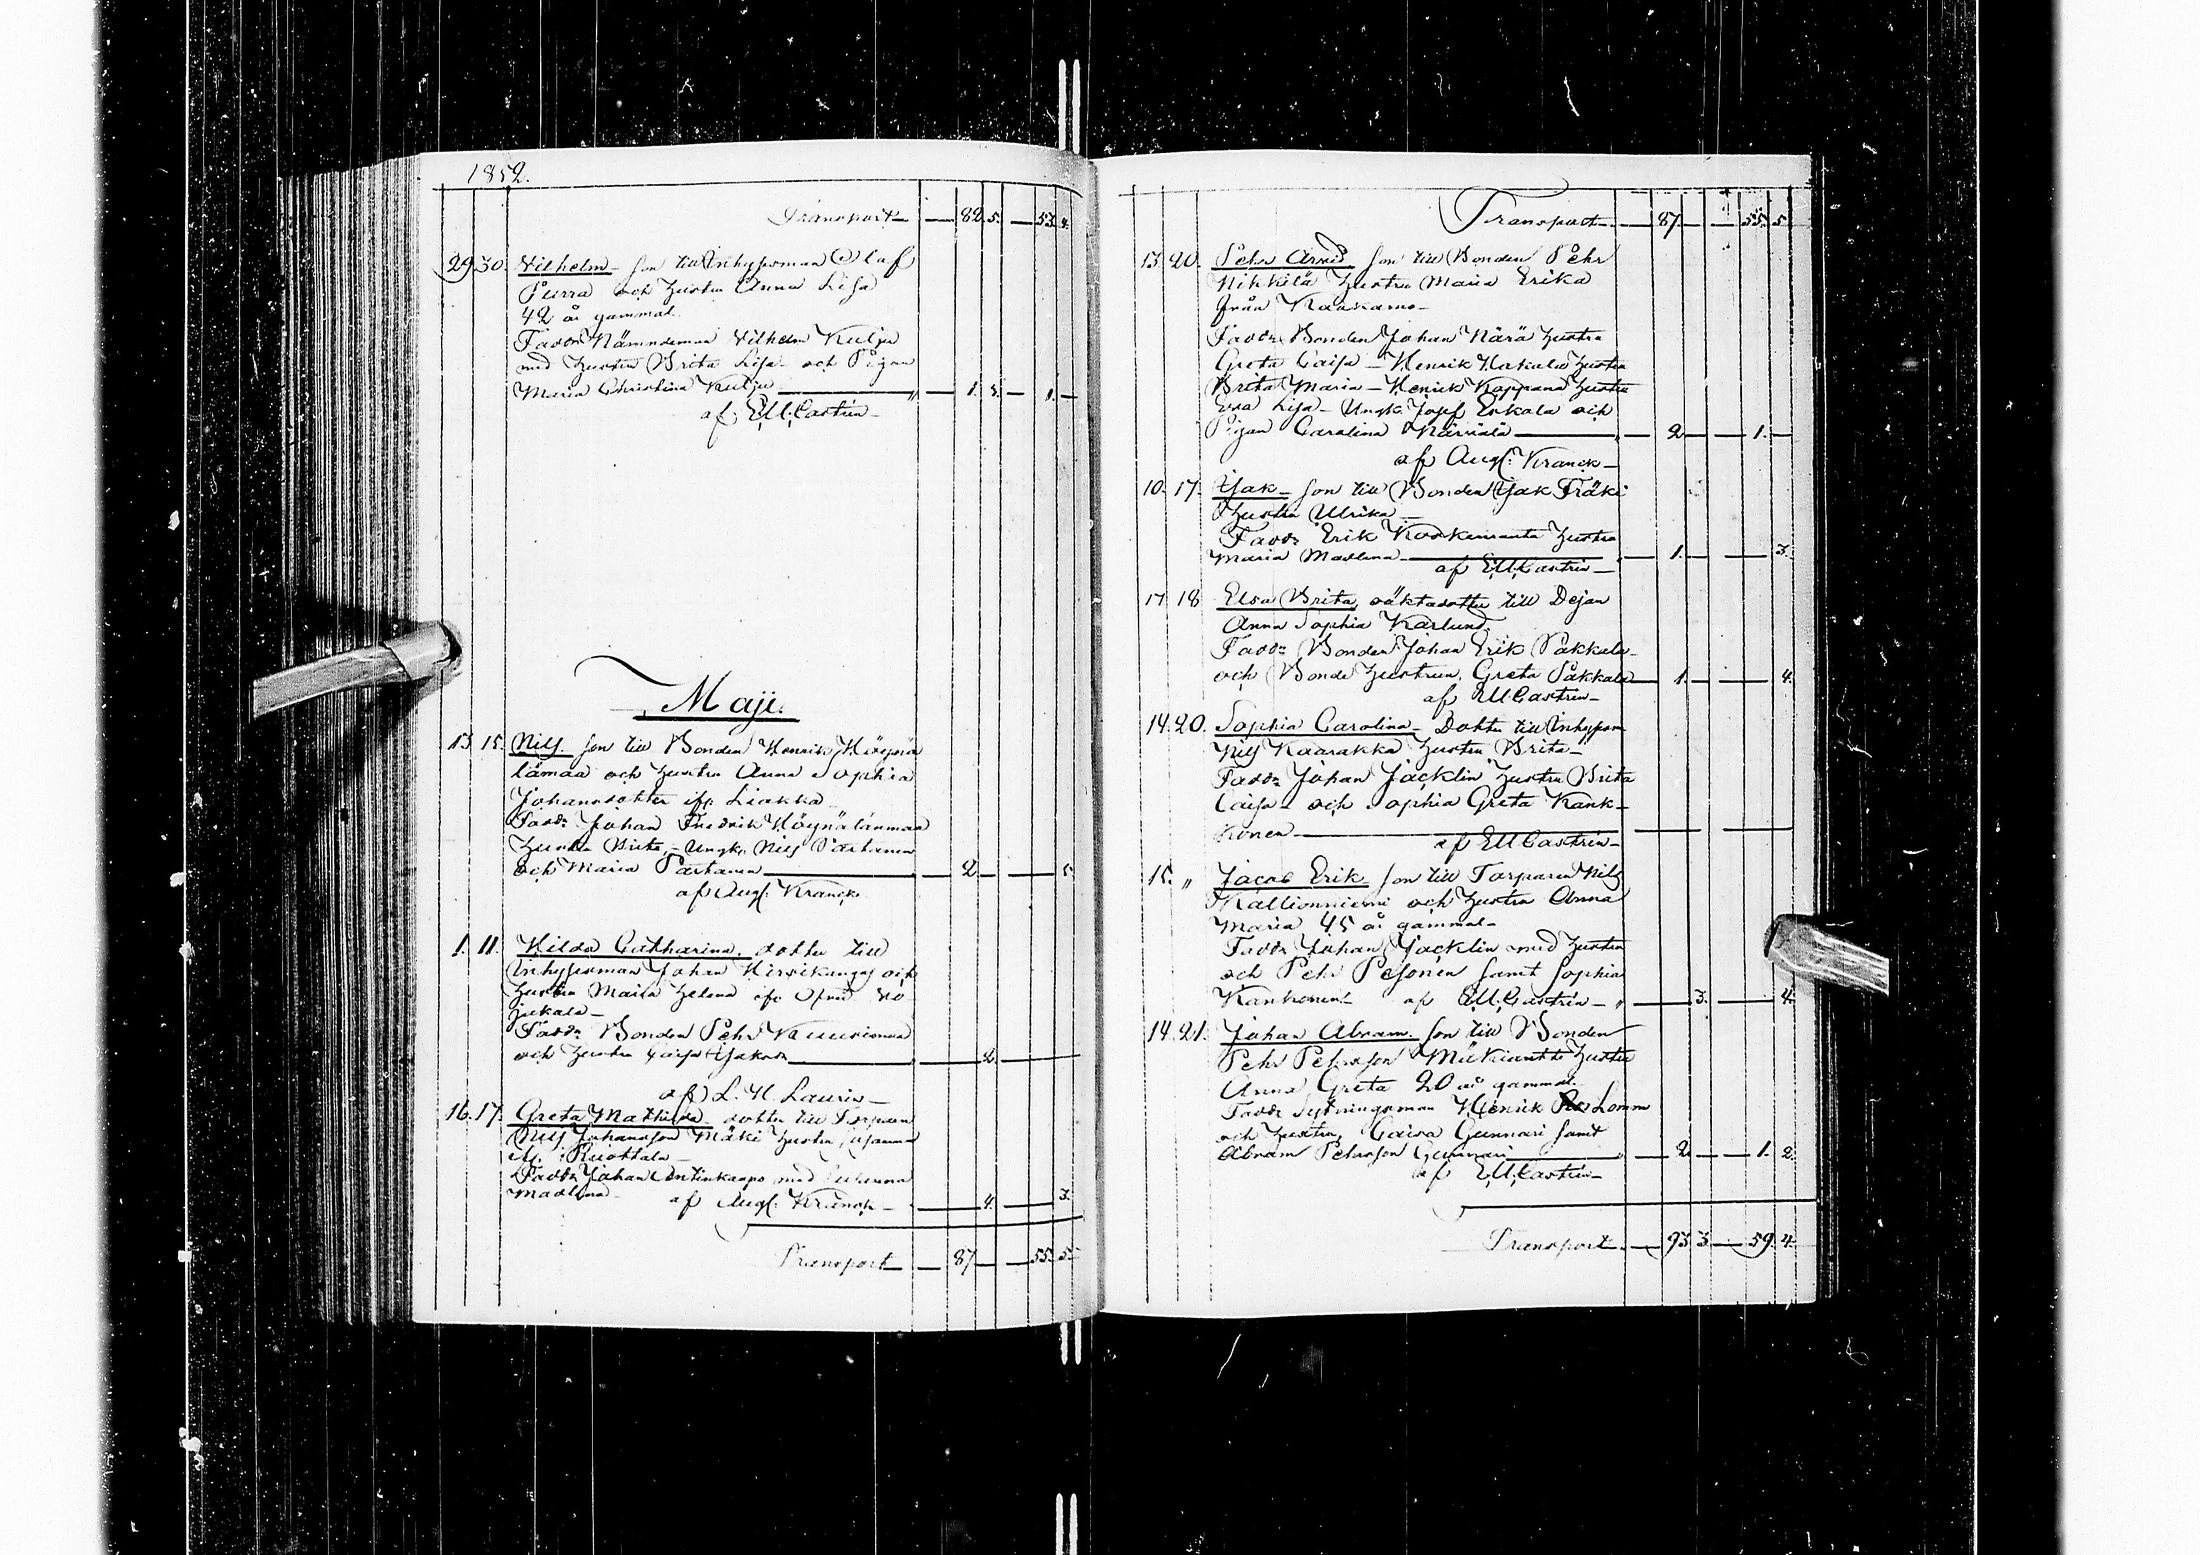 1852.
Transport — 82. 5. — 53. 4.
29. 30. Vilhelm — son till Inhysesman Olaf
Purra och hustru Anna Lisa
42 år gammal.
Faddr Nämndeman Vilhelm Kulju
med hustru Brita Lisa — och Pigan
Maria Christina Kulju — 1. 5. — 1. —
af E.U. Castrén —
Maji.
13. 15. Nils. son till Bonden Henrik Höynä
lämaa och hustru Anna Sophia
Johansdotter ifr. Liakka —
Faddr Johan Fredrik Höynälänmaa
hustru Brita, — Ungk. Nils Partanen
och Maria Partanen — 2. — 5.
af Aug. Kranck
1. 11. Hilda Catharina. dotter till
Inhysesman Johan Hirsikangas och
hustru Maria Helena ifr. Öfver
jukala —
Faddr Bonden Pehr
och hustru Caisa — 2. —
af L. H. Laurin —
16. 17. Greta Mathilda dotter till Torparen
Nils Johansson Mäki hustru Susanna
ifr. Ruottala —
Faddr Johan Antinkaapo med
Madlena — af Aug. Kranck — 4. — 3.
Transport — 87 — 55. 5.
Transport — 87. — 55. 5
13. 20. Pehr Arvid son till Bonden Pehr
Nikkilä hustru Maria Erika
från Kaakamo —
Faddr Bonden Johan Närä hustru
Greta Caisa — Henrik Hakala hustru
Brita Maria — Henrik Kappana hustru
Eva Lisa — Ungk. Josef Erkala och
Pigan Carolina — 2 — 1. —
af Aug. Kranck —
10. 17. Isak — son till Bonden Isak Träki
hustru Ulrika —
Faddr Erik Koskenranta hustru
Maria Madlena — 1. — 3.
af E.U. Castrén —
17 18 Elsa Brita, oäktadotter till Dejan
Anna Sophia Karlund.
Faddr Bonden Johan Erik Pakkala —
och Bonde hustrun Greta Pakkala — 1. — 4.
af E.U. Castrén —
14. 20. Sophia Carolina — Dotter till Inhysesm
Nils Kaarakka hustru Brita —
Faddr Johan Jacklin hustru Brita
Caisa — och Sophia Greta Kank —
konen —
af E.U. Castrén —
15. „ Jacob Erik son till Torparen Nils
Kallionniemi och hustru Anna
Maria 45 år gammal —
Faddr Johan Jacklin med hustru
och Pehr Pesonen samt Sophia
Kankonen — af E.U. Castrén — 3. — 4.
14. 21. Johan Abram. son till Bonden
Pehr Pehrsson hustru
Anna Greta 20 år gammal.
Faddr Sytningsman Henrik Lomm
och hustru, Caisa Gunnari samt
Abram Pehrsson Gunnari — 2. — 1. 2.
af E.U. Castrén —
Transport — 93 3 — 59. 4.